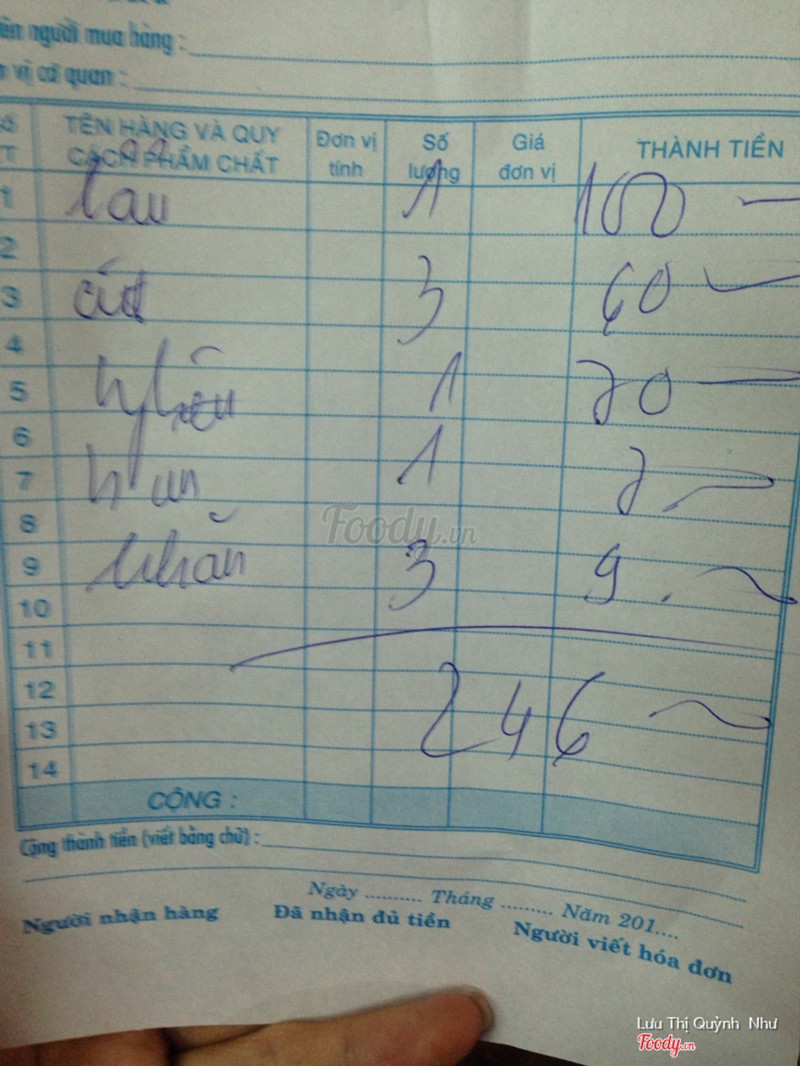 ên người mua hàng :
n vị cơ quan :
TÊN HÀNG VÀ QUY CÁCH PHẨM CHẤT
Đơn vị tính
Số lượng
Giá đơn vị
THÀNH TIỀN
1 lẩu 1 100
2
3 3 60
4
5 nghêu 1 70
6
7 1 7
8
9 khăn 3 9
10
11
12
246
13
14
CỘNG :
Cộng thành tiền (viết bằng chữ) :
Ngày .......... Tháng ......... Năm 201....
Người nhận hàng Đã nhận đủ tiền Người viết hóa đơn
Foody.vn
Lưu Thị Quỳnh Như
Foody.vn